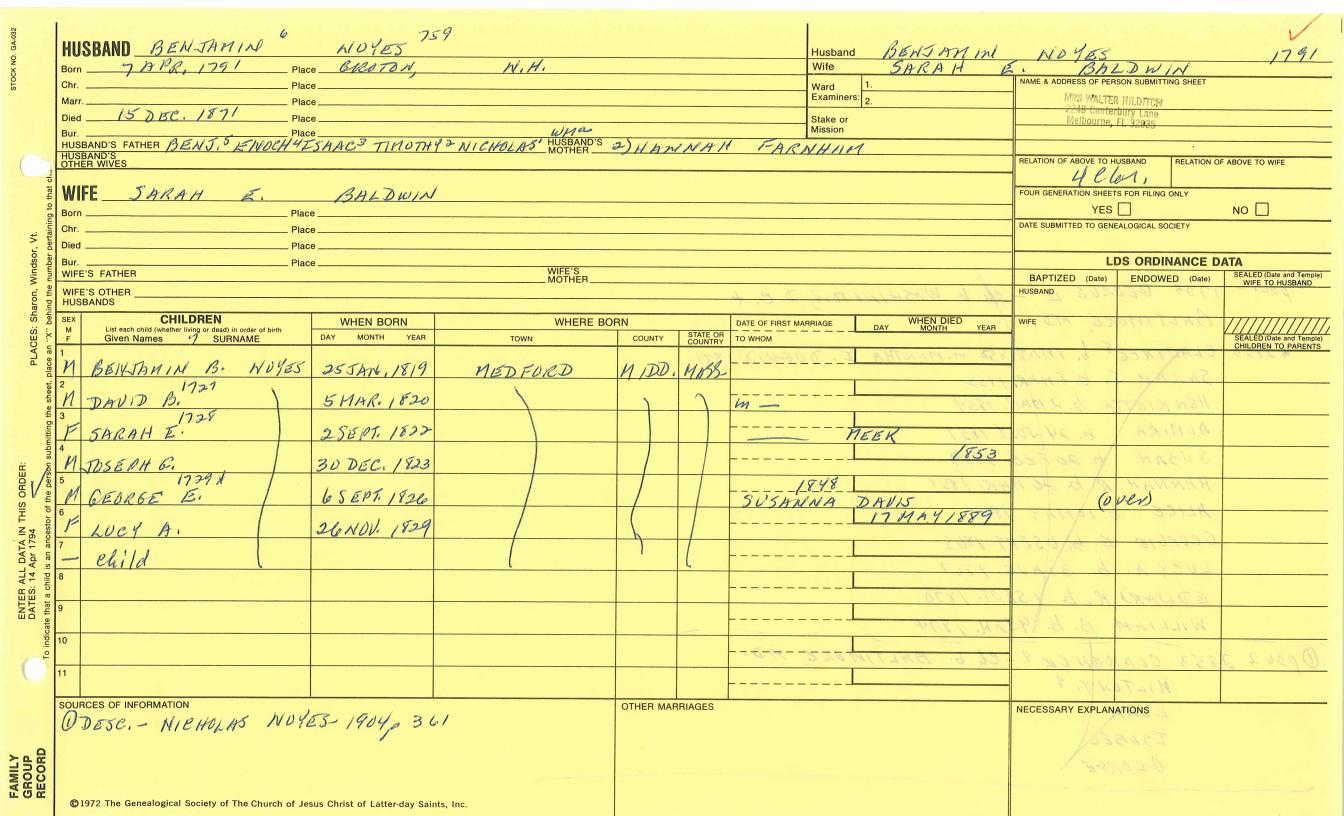 STOCK NO. GA-032
HUSBAND BENJAMIN 6 NOYES 759
Born 7 APR. 1791 Place GROTON, N.H.
Chr. Place
Marr. Place
Died 15 DEC. 1871 Place
Bur. Place
HUSBAND'S FATHER BENJ.5 ENOCH4 ISAAC3 TIMOTHY2 NICHOLAS1 HUSBAND'S MOTHER 2) HANNAH FARNHUM
HUSBAND'S OTHER WIVES
Husband BENJAMIN NOYES 1791
Wife SARAH E. BALDWIN
Ward Examiners: 1.
2.
Stake or Mission
NAME & ADDRESS OF PERSON SUBMITTING SHEET
MRS WALTER HILDITCH
2248 Canterbury Lane
Melbourne, FL 32935
RELATION OF ABOVE TO HUSBAND RELATION OF ABOVE TO WIFE
FOUR GENERATION SHEETS FOR FILING ONLY
YES NO
DATE SUBMITTED TO GENEALOGICAL SOCIETY
WIFE SARAH E. BALDWIN
Born Place
Chr. Place
Died Place
Bur. Place
WIFE'S FATHER WIFE'S MOTHER
WIFE'S OTHER HUSBANDS
LDS ORDINANCE DATA
BAPTIZED (Date) ENDOWED (Date) SEALED (Date and Temple) WIFE TO HUSBAND
HUSBAND
WIFE
SEALED (Date and Temple) CHILDREN TO PARENTS
SEX M F CHILDREN WHEN BORN WHERE BORN DATE OF FIRST MARRIAGE WHEN DIED
List each child (whether living or dead) in order of birth
Given Names 7 SURNAME DAY MONTH YEAR TOWN COUNTY STATE OR COUNTRY TO WHOM DAY MONTH YEAR
1 M BENJAMIN B. NOYES 25 JAN. 1819 MEDFORD MIDD. MASS
2 M DAVID B. 1727 5 MAR. 1820 m —
3 F SARAH E. 1728 2 SEPT. 1822 —— MEEK
4 M JOSEPH G. 30 DEC. 1823 1853
5 M GEORGE E. 1729 6 SEPT. 1826 1848 SUSANNA DAVIS (over)
6 F LUCY A. 26 NOV. 1829 17 MAY 1889
7 — child
8
9
10
11
SOURCES OF INFORMATION
① DESC. - NICHOLAS NOYES - 1904, p 361
OTHER MARRIAGES
NECESSARY EXPLANATIONS
©1972 The Genealogical Society of The Church of Jesus Christ of Latter-day Saints, Inc.
FAMILY GROUP RECORD
ENTER ALL DATA IN THIS ORDER:
DATES: 14 Apr 1794
PLACES: Sharon, Windsor, Vt.
To indicate that a child is an ancestor of the person submitting the sheet, place an "X" behind the number pertaining to that